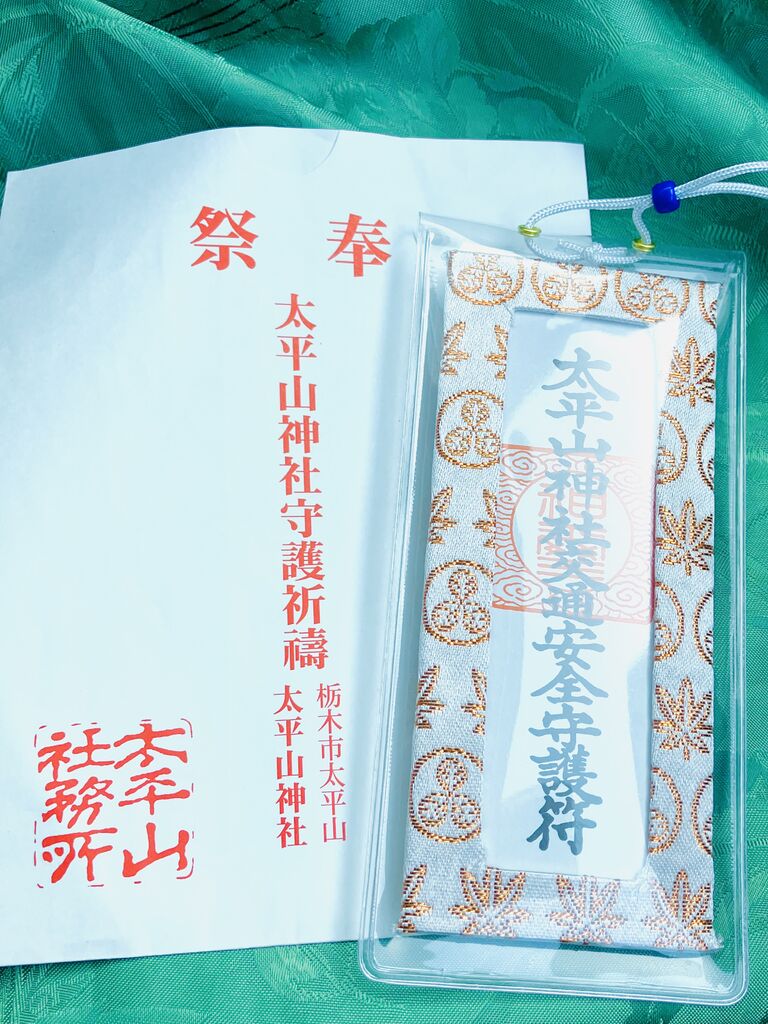 奉祭
太平山神社守護祈禱
栃木市太平山
太平山神社
太平山
社務所
太平山神社交通安全守護符